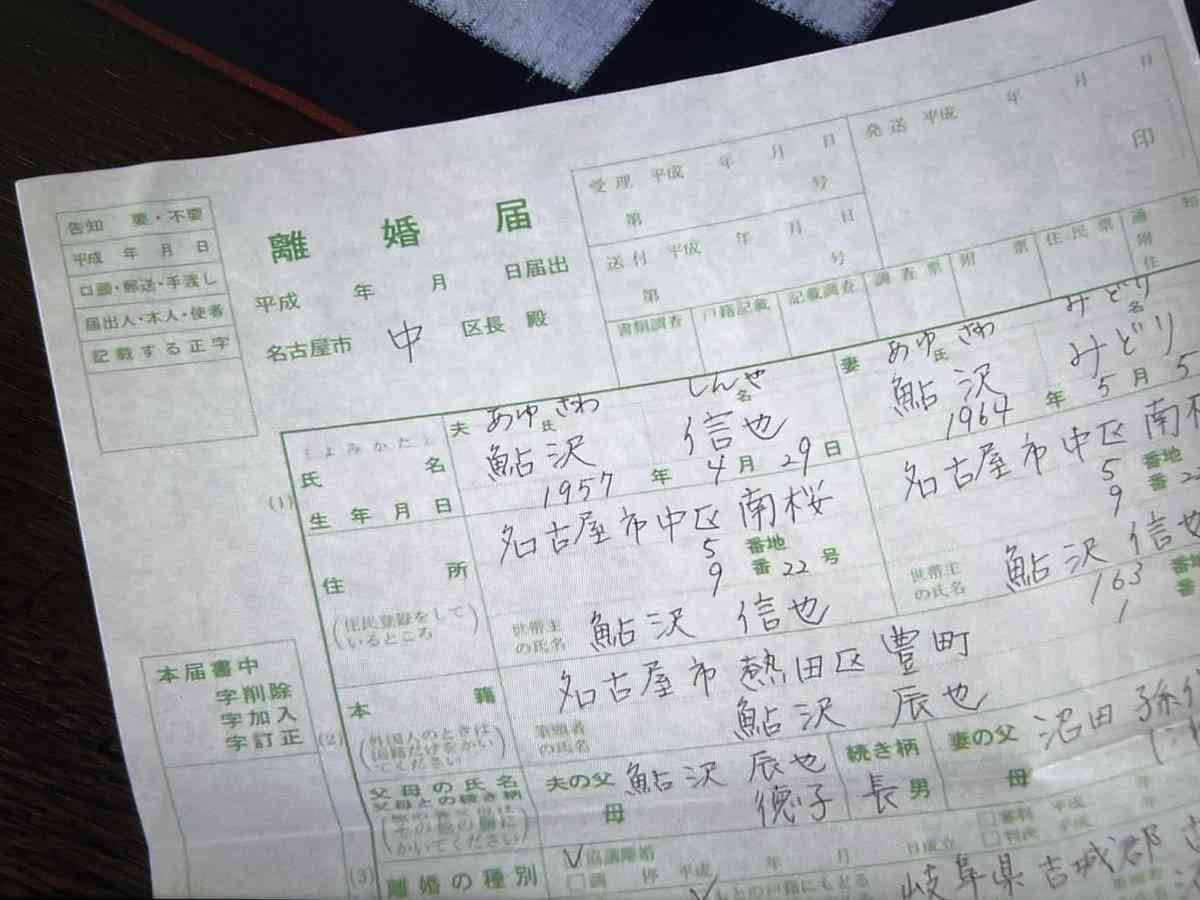 離婚届
平成 年 月 日届出
名古屋市 中 区長 殿
告知 要・不要
平成 年 月 日
口頭・郵送・手渡し
届出人・本人・使者
記載する正字
受理 平成 年 月 日
第 号
送付 平成 年 月 日
第 号
発送 平成 年 月 日
印
書類調査 戸籍記載 記載調査 調査票 附票 住民票 通知
(1)
よみかた
氏名
夫 あゆさわ しんや
氏 名
鮎沢 信也
妻 あゆさわ みどり
氏 名
鮎沢 みどり
生年月日
1957 年 4 月 29 日
1964 年 5 月 5
住所
(住民登録をしているところ)
名古屋市中区南桜
5 番地
9 番 22 号
世帯主の氏名 鮎沢 信也
名古屋市中区南桜
5 番地
9 番 2
世帯主の氏名 鮎沢 信也
(2)
本籍
(外国人のときは国籍だけをかいてください)
名古屋市熱田区豊町
163 番地
1 番
筆頭者の氏名 鮎沢 辰也
父母の氏名
父母との続き柄
夫の父 鮎沢 辰也
母 徳子
続き柄
長 男
妻の父 沼田
母
(3)
離婚の種別
協議離婚
調停 平成 年 月 日成立
審判 平成 年
判決 平成
もとの戸籍にもどる
岐阜県吉城郡
本届書中
字削除
字加入
字訂正